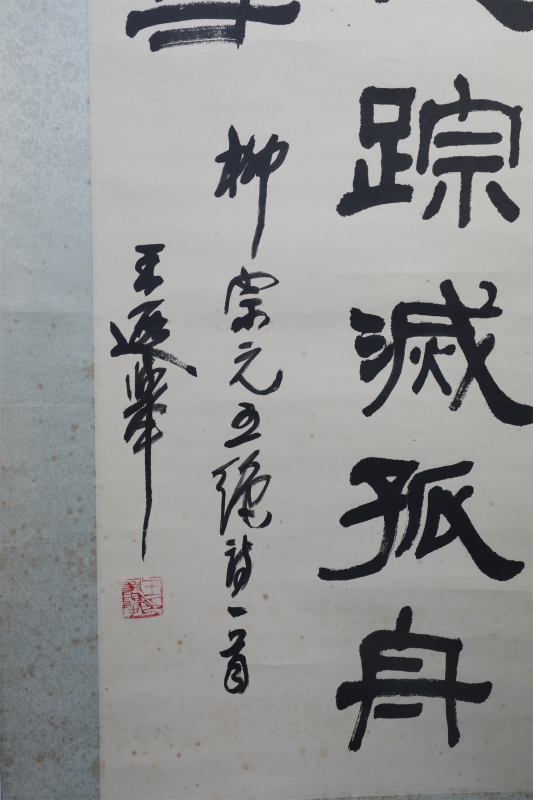 踪滅孤舟
雪
柳宗元五绝诗一首
王遐舉